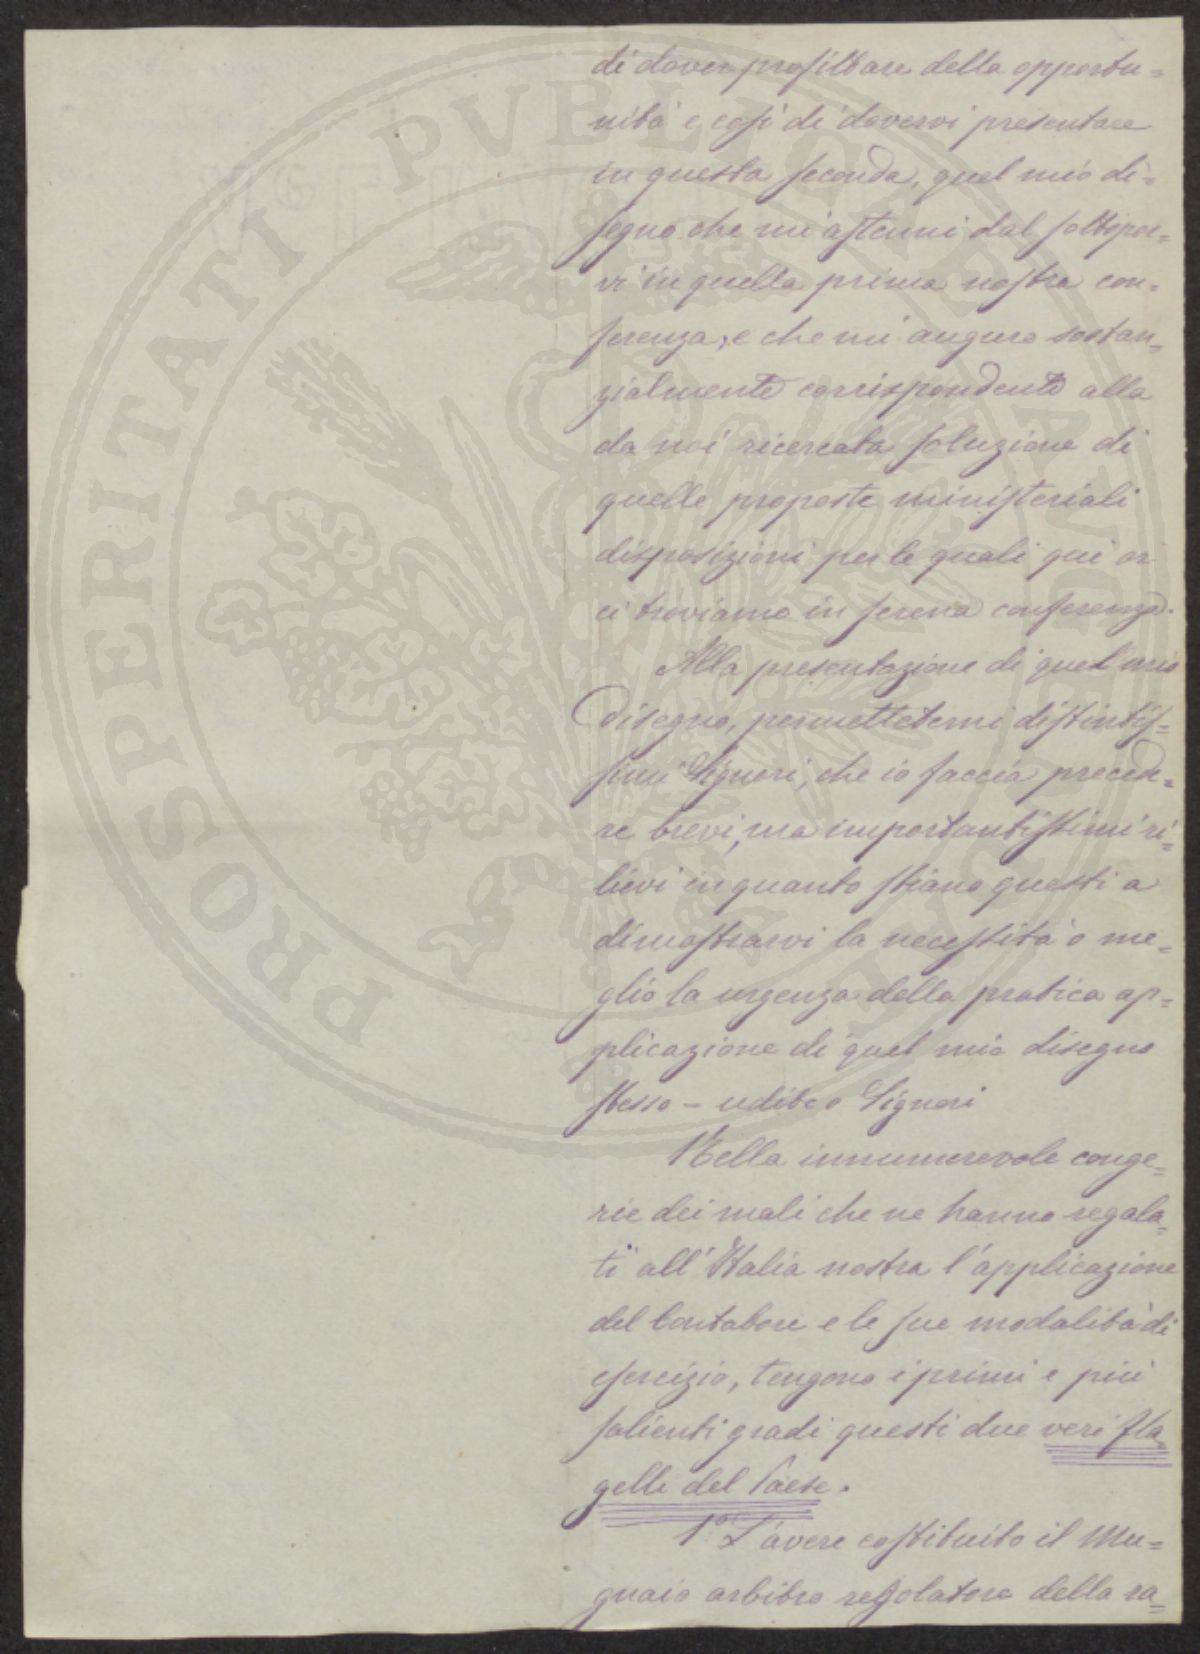 PROSPERITATI PUBLICAE AUGENDAE
di dover profittare della opportu=
nità e così di dovervi presentare
in questa seconda, quel mio di=
segno che mi astenni dal sottopor=
vi in quella prima nostra con=
ferenza, e che mi auguro sostan=
zialmente corrispondente alla
da noi ricercata soluzione di
quelle proposte ministeriali
disposizioni per le quali qui or
ci troviamo in serena conferenza.
Alla presentazione di quel mio
disegno, permettetemi distintis=
simi Signori, che io faccia precede=
re brevi, ma importantissimi ri=
lievi in quanto stiano questi a
dimostrarvi la necessità o me=
glio la urgenza della pratica ap=
plicazione di quel mio disegno
stesso – udite o Signori
Nella innumerevole conge=
rie dei mali che ne hanno regala=
ti all'Italia nostra l'applicazione
del Contatore e le sue modalità di
esercizio, tengono i primi e più
salienti gradi questi due veri fla=
gelli del Paese.
1.° L'avere costituito il Mu=
gnaio arbitro regolatore della ra=